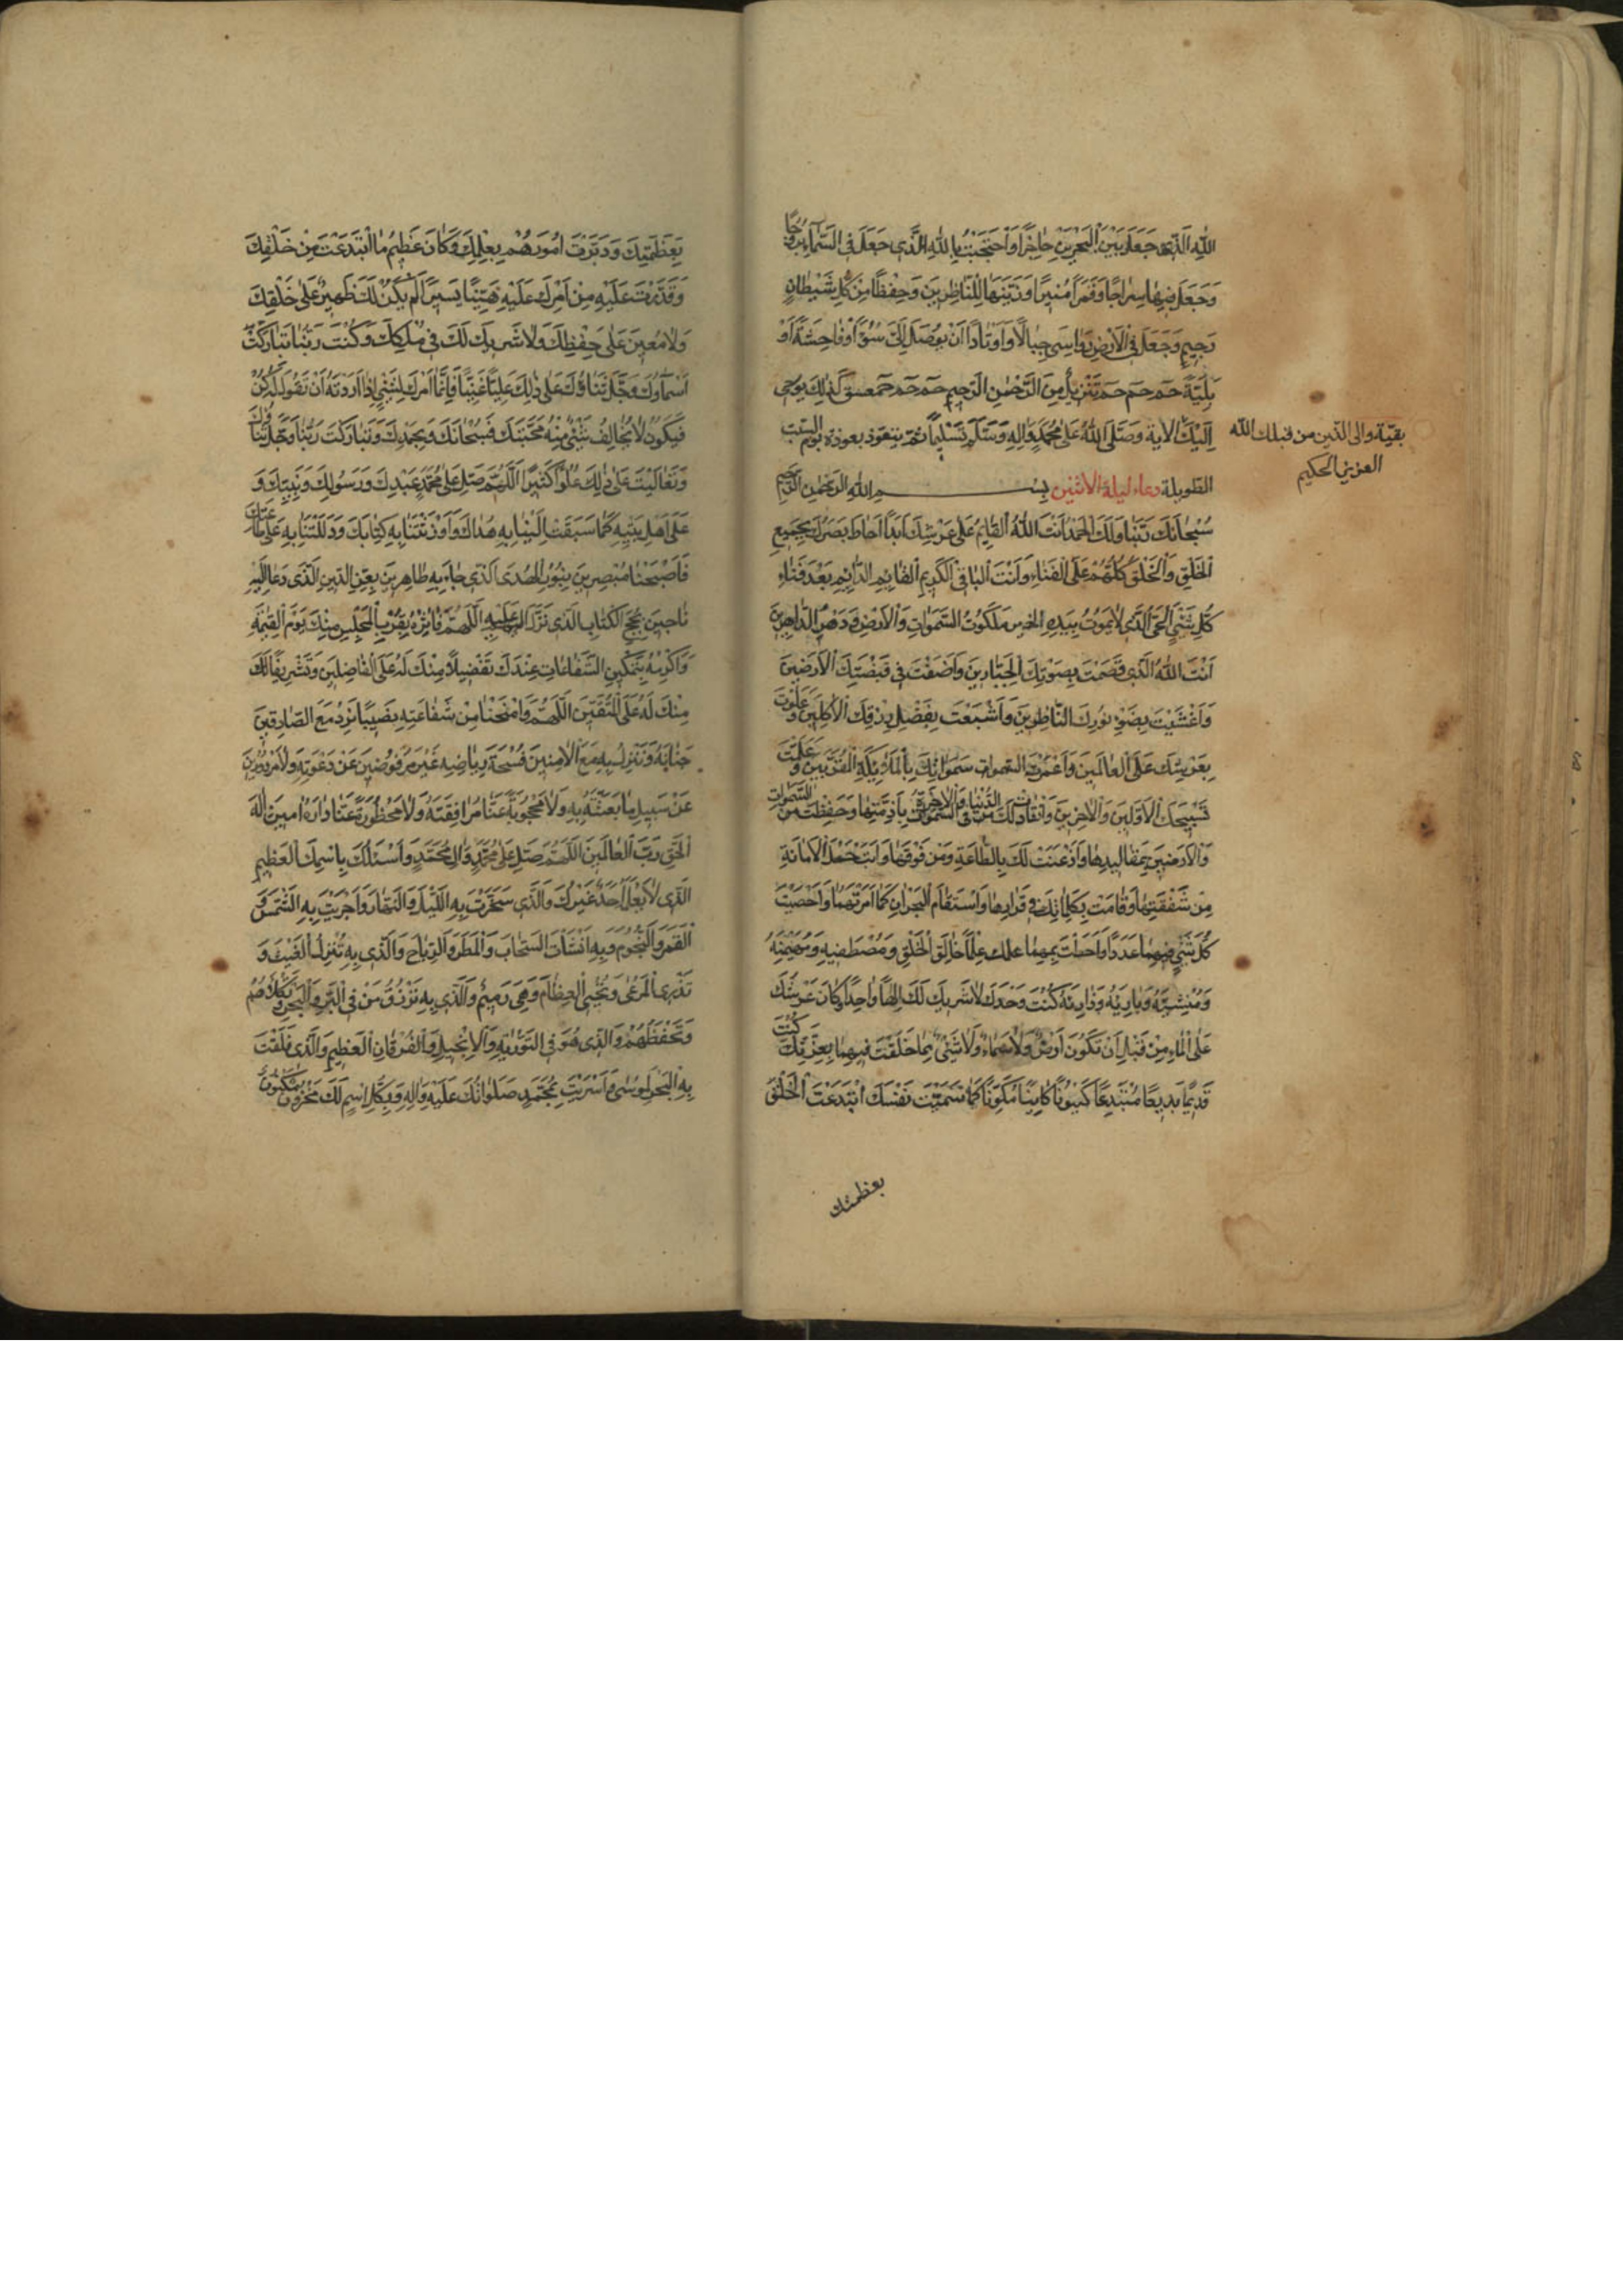 اللهِ الَّذِي جَعَلَ بَيْنَ الْبَحْرَيْنِ حَاجِزًا وَاحْتَجَبْتُ بِاللهِ الَّذِي جَعَلَ فِي السَّمَاءِ بُرُوجًا
وَجَعَلَ فِيهَا سِرَاجًا وَقَمَرًا مُنِيرًا وَزَيَّنَهَا لِلنَّاظِرِينَ وَحِفْظًا مِنْ كُلِّ شَيْطَانٍ
رَجِيمٍ وَجَعَلَ فِي الْأَرْضِ رَوَاسِيَ جِبَالًا وَأَوْتَادًا أَنْ يُوصَلَ إِلَيَّ سُوءٌ أَوْ فَاحِشَةٌ أَوْ
بَلِيَّةٌ حم حم حم تَنْزِيلٌ مِنَ الرَّحْمٰنِ الرَّحِيمِ حم حم حم عسق كَذٰلِكَ يُوحِي
إِلَيْكَ الآية وَصَلَّى اللهُ عَلَى مُحَمَّدٍ وَآلِهِ وَسَلَّمَ تَسْلِيمًا ثم يتعوذ بعوذة يوم السبت
بقيّة والى الذين من قبلك الله
العزيز الحكيم
الطويلة دعاء ليلة الاثنين بسم الله الرحمن الرحيم
سُبْحَانَكَ رَبَّنَا وَلَكَ الْحَمْدُ أَنْتَ اللهُ الْقَائِمُ عَلَى عَرْشِكَ أَبَدًا أَحَاطَ بَصَرُكَ بِجَمِيعِ
الْخَلْقِ وَالْخَلْقُ كُلُّهُمْ عَلَى الْفَنَاءِ وَأَنْتَ الْبَاقِي الْكَرِيمُ الْقَائِمُ الدَّائِمُ بَعْدَ فَنَاءِ
كُلِّ شَيْءٍ الْحَيُّ الَّذِي لَا يَمُوتُ بِيَدِهِ الخير مَلَكُوتُ السَّمٰوَاتِ وَالْأَرْضِ وَدَهْرُ الدَّاهِرِينَ
أَنْتَ اللهُ الَّذِي قَصَمْتَ بِصَوْتِكَ الْجَبَّارِينَ وَأَضَفْتَ فِي قَبْضَتِكَ الْأَرَضِينَ
وَأَغْشَيْتَ بِضَوْءِ نُورِكَ النَّاظِرِينَ وَأَشْبَعْتَ بِفَضْلِ رِزْقِكَ الْآكِلِينَ وَعَلَوْتَ
بِعَرْشِكَ عَلَى الْعَالَمِينَ وَأَعْمَرْتَ سَمٰوَاتِكَ بِالْمَلَائِكَةِ الْمُقَرَّبِينَ وَعَلَّمْتَ
تَسْبِيحَكَ الْأَوَّلِينَ وَالْآخِرِينَ وَانْقَادَتْ لَكَ الدُّنْيَا وَالْآخِرَةُ بِأَزِمَّتِهَا وَحَفِظْتَ السَّمٰوَاتِ
وَالْأَرَضِينَ بِمَقَالِيدِهَا وَأَذْعَنَتْ لَكَ بِالطَّاعَةِ وَمَنْ فَوْقَهَا وَأَبَتْ حَمْلَ الْأَمَانَةِ
مِنْ شَفَقَتِهَا وَقَامَتْ بِكَلِمَاتِكَ فِي قَرَارِهَا وَاسْتَقَامَ الْبَحْرَانِ كَمَا أَمَرْتَهُمَا وَأَحْصَيْتَ
كُلَّ شَيْءٍ فِيهِمَا عَدَدًا وَأَحَطْتَ بِهِمَا علمك عِلْمًا خَالِقَ الْخَلْقِ وَمُصْطَفِيهِ وَمُهَيْمِنَهُ
وَمُنْشِئَهُ وَبَارِئَهُ وَذَارِئَهُ كُنْتَ وَحْدَكَ لَا شَرِيكَ لَكَ إِلٰهًا وَاحِدًا وَكَانَ عَرْشُكَ
عَلَى الْمَاءِ مِنْ قَبْلِ أَنْ تَكُونَ أَرْضٌ وَلَا سَمَاءٌ وَلَا شَيْءٌ مِمَّا خَلَقْتَ فِيهِمَا بِعِزَّتِكَ كُنْتَ
قَدِيمًا بَدِيعًا مُبْتَدِعًا كَيْنُونًا كَائِنًا مُكَوِّنًا كَمَا سَمَّيْتَ نَفْسَكَ ابْتَدَعْتَ الْخَلْقَ
بعظمتك
بِعَظَمَتِكَ وَدَبَّرْتَ أُمُورَهُمْ بِعِلْمِكَ وَكَانَ عَظِيمُ مَا ابْتَدَعْتَ مِنْ خَلْقِكَ
وَقَدَّرْتَ عَلَيْهِ مِنْ أَمْرِكَ عَلَيْهِ هَيِّنًا يَسِيرًا لَمْ يَكُنْ لَكَ ظَهِيرٌ عَلَى خَلْقِكَ
وَلَا مُعِينٌ عَلَى حِفْظِكَ وَلَا شَرِيكَ لَكَ فِي مُلْكِكَ وَكُنْتَ رَبَّنَا تَبَارَكَتْ
أَسْمَاؤُكَ وَجَلَّ ثَنَاؤُكَ عَلَى ذٰلِكَ عَلِيًّا غَنِيًّا فَإِنَّمَا أَمْرُكَ لِشَيْءٍ إِذَا أَرَدْتَهُ أَنْ تَقُولَ لَهُ كُنْ
فَيَكُونُ لَا يُخَالِفُ شَيْءٌ مِنْهُ مَحَبَّتَكَ فَسُبْحَانَكَ وَبِحَمْدِكَ وَتَبَارَكْتَ رَبَّنَا وَجَلَّ ثَنَاؤُكَ
وَتَعَالَيْتَ عَلَى ذٰلِكَ عُلُوًّا كَبِيرًا اَللّٰهُمَّ صَلِّ عَلَى مُحَمَّدٍ عَبْدِكَ وَرَسُولِكَ وَنَبِيِّكَ وَ
عَلَى أَهْلِ بَيْتِهِ كَمَا سَبَقَتْ إِلَيْنَا بِهِ هُدَاكَ وَأَوْرَثْتَنَا بِهِ كِتَابَكَ وَدَلَلْتَنَا بِهِ عَلَى طَاعَتِكَ
فَأَصْبَحْنَا مُبْصِرِينَ بِنُورِ الْهُدَى الَّذِي جَاءَ بِهِ ظَاهِرِينَ بِعِزِّ الدِّينِ الَّذِي دَعَا إِلَيْهِ
نَاجِينَ بِحُجَجِ الْكِتَابِ الَّذِي نَزَلَ عَلَيْهِ اللّٰهُمَّ فَآثِرْهُ بِقُرْبِ الْمَجْلِسِ مِنْكَ يَوْمَ الْقِيٰمَةِ
وَأَكْرِمْهُ بِتَمْكِينِ الشَّفَاعَاتِ عِنْدَكَ تَفْضِيلًا مِنْكَ لَهُ عَلَى الْفَاضِلِينَ وَتَشْرِيفًا لَكَ
مِنْكَ لَهُ عَلَى الْمُتَّقِينَ اللّٰهُمَّ وَامْنَحْنَا مِنْ شَفَاعَتِهِ نَصِيبًا نَرِدُ مَعَ الصَّادِقِينَ
جَنَابَهُ وَنَنْزِلُ بِهِ مَعَ الْآمِنِينَ فُسْحَةَ رِيَاضِهِ غَيْرَ مَرْفُوضِينَ عَنْ دَعْوَتِهِ وَلَا مَرْدُودِينَ
عَنْ سَبِيلِ مَا بَعَثْتَهُ بِهِ وَلَا مَحْجُوبَةً عَنَّا مُرَافَقَتُهُ وَلَا مَحْظُورَةً عَنَّا دَارُهُ آمِينَ إِلٰهَ
الْحَقِّ رَبَّ الْعَالَمِينَ اللّٰهُمَّ صَلِّ عَلَى مُحَمَّدٍ وَآلِ مُحَمَّدٍ وَأَسْئَلُكَ بِاسْمِكَ الْعَظِيمِ
الَّذِي لَا يَعْلَمُ أَحَدٌ غَيْرُكَ وَالَّذِي سَخَّرْتَ بِهِ اللَّيْلَ وَالنَّهَارَ وَأَجْرَيْتَ بِهِ الشَّمْسَ وَ
الْقَمَرَ وَالنُّجُومَ وَبِهِ أَنْشَأْتَ السَّحَابَ وَالْمَطَرَ وَالرِّيَاحَ وَالَّذِي بِهِ تُنْزِلُ الْغَيْثَ وَ
تَذْرِي الْمَرْعَى وَتُحْيِي الْعِظَامَ وَهِيَ رَمِيمٌ وَالَّذِي بِهِ تَرْزُقُ مَنْ فِي الْبَرِّ وَالْبَحْرِ وَتَكْلَؤُهُمْ
وَتَحْفَظُهُمْ وَالَّذِي هُوَ فِي التَّوْرٰيةِ وَالْإِنْجِيلِ وَالْفُرْقَانِ الْعَظِيمِ وَالَّذِي فَلَقْتَ
بِهِ الْبَحْرَ لِمُوسَى وَأَسْرَيْتَ بِمُحَمَّدٍ صَلَوَاتُكَ عَلَيْهِ وَآلِهِ وَبِكُلِّ اسْمٍ لَكَ مَخْزُونٍ مَكْنُونٍ